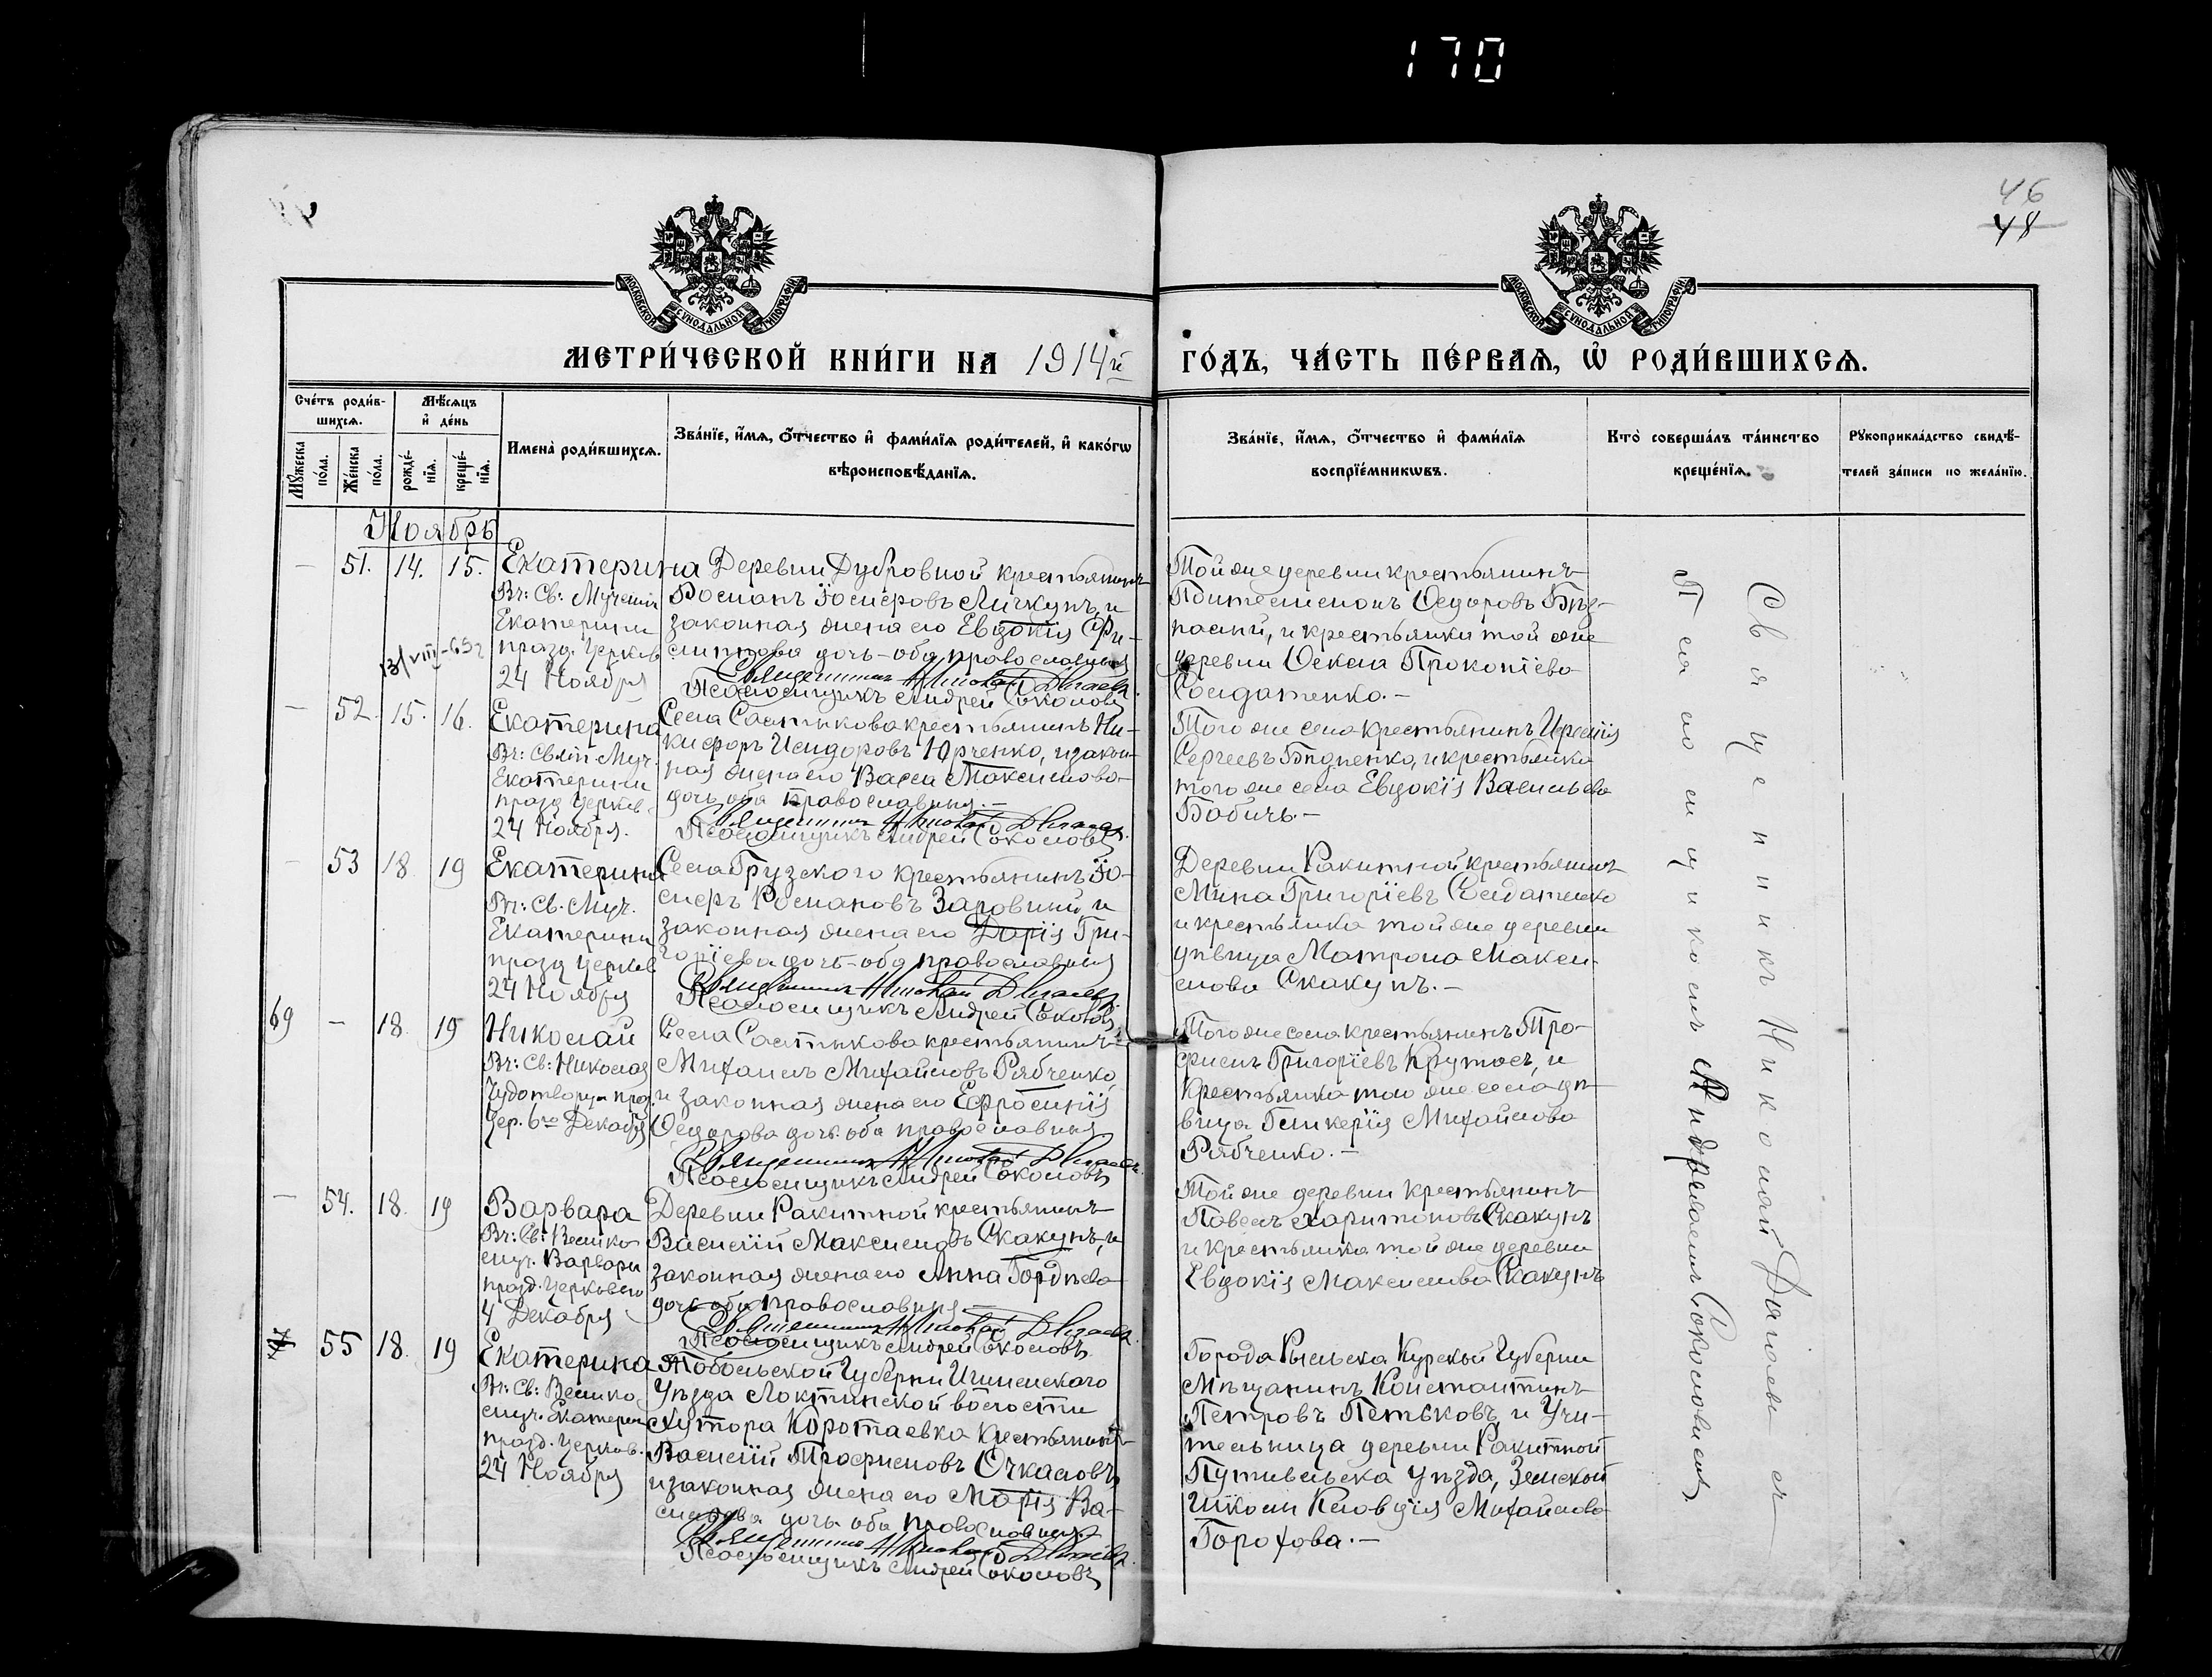 170
46
48
МОСКОВСКОЙ СѴНОДАЛЬНОЙ ТИПОГРАФІИ
МОСКОВСКОЙ СѴНОДАЛЬНОЙ ТИПОГРАФІИ
МЕТРИ́ЧЕСКОЙ КНИ́ГИ НА 1914й ГО́ДЪ, ЧА́СТЬ ПЕ́РВАѦ, Ѽ РОДИ́ВШИХСѦ.
Сче́тъ роди́в-
шихсѧ.
Мѣ́сѧцъ
и҆ де́нь
Мꙋ́жеска
по́ла.
Же́нска
по́ла.
рожде́-
нїѧ.
креще́-
нїѧ.
Имена̀ роди́вшихсѧ.
Зва́нїе, и҆́мѧ, ѻ҆́тчество и҆ фами́лїѧ роди́телей, и҆ како́гѡ
вѣроисповѣ́данїѧ.
Зва́нїе, и҆́мѧ, ѻ҆́тчество и҆ фами́лїѧ
воспрїе́мникѡвъ.
Кто̀ соверша́лъ та́инство
креще́нїѧ.
Рꙋкоприкла́дство свидѣ́-
телей за́писи по жела́нїю.
Ноябрь
— 51. 14. 15. Екатерина
Вч: Св: Мученицы
Екатерины
празд. Церков
24 Ноября
13/VIII-65г
Деревни Дубровной крестьянинъ
Романъ Іосифовъ Личкунъ, и
законная жена его Евдокія Фи-
липпова дочь - оба православныя
Священникъ Николай Дягаевъ.
Псаломщикъ Андрей Соколовъ
Той же деревни крестьянинъ
Ѳедоровъ
и крестьянка той же
деревни Ѳекла Прокопіева
Солдатенко. —
— 52. 15. 16. Екатерина
Вч: Свят Муч.
Екатерины
празд Церков
24 Ноября.
Села Састыкова крестьянинъ Ни-
кифоръ Исидоровъ Юрченко, и закон-
ная жена его Васса Максимова
дочь оба православныя. —
Священникъ Николай Дягаевъ.
Псаломщикъ Андрей Соколовъ
Того же села крестьянинъ
Сергеевъ Бѣдненко, и крестьянка
того же села Евдокія Васильева
Бабичъ. —
— 53 18 19 Екатерина
Вч: Св. Муч.
Екатерины
празд Церков
24 Ноября
Села Грузского крестьянинъ Іо-
сифъ Романовъ Заровный, и
законная жена его Дарія Гри-
горіева дочь - оба православныя
Священникъ Николай Дягаевъ
Псаломщикъ Андрей Соколовъ
Деревни Ракитной крестьянинъ
Мина Григоріевъ Солдатенко
и крестьянка той же деревни
дѣвица Матрона Макси-
мова Скакунъ. —
69 — 18 19 Николай
Вч: Св: Николая
Чудотворца праз.
Цер. 6го Декабря
Села Састыкова крестьянинъ
Михаилъ Михайловъ Рябченко,
и законная жена его Ефросинія
Ѳедорова дочь оба православныя
Священникъ Николай Дягаевъ.
Псаломщикъ Андрей Соколовъ
Того же села крестьянинъ Тро-
фимъ Григоріевъ Крутось, и
Крестьянка того же села дѣ-
вица Гликерія Михайлова
Рябченко. —
— 54. 18. 19 Варвара
Вч: Св: Велико
муч. Варвары
празд. Церковью
4 Декабря
Деревни Ракитной крестьянинъ
Василій Максимовъ Скакунъ, и
законная жена его Анна Гордѣева
дочь оба православныя —
Священникъ Николай Дягаевъ.
Псаломщикъ Андрей Соколовъ
Той же деревни крестьянинъ
Павелъ Харитоновъ Скакунъ
и крестьянка той же деревни
Евдокія Максимова Скакунъ
55 18. 19 Екатерина
Вч: Св: Велико
муч. Екатерины
празд. Церков.
24 Ноября
Тобольской Губерніи Ишимскаго
Уѣзда Локтинской волости
Хутора Коротаевка Крестьянинъ
Василій Трофимовъ Очкасовъ,
и законная жена его Марія Ва-
сильева дочь оба православныя
Священникъ Николай Дягаевъ.
Псаломщикъ Андрей Соколовъ
Города Рыльска Курской Губерніи
Мѣщанинъ Константинъ
Петровъ Пѣтьковъ, и Учи-
тельница деревни Ракитной
Путивльска уѣзда, Земской
Школы Клавдія Михайлова
Горохова. —
Священникъ Николай Дягаевъ
Псаломщикомъ Андреемъ Соколовымъ